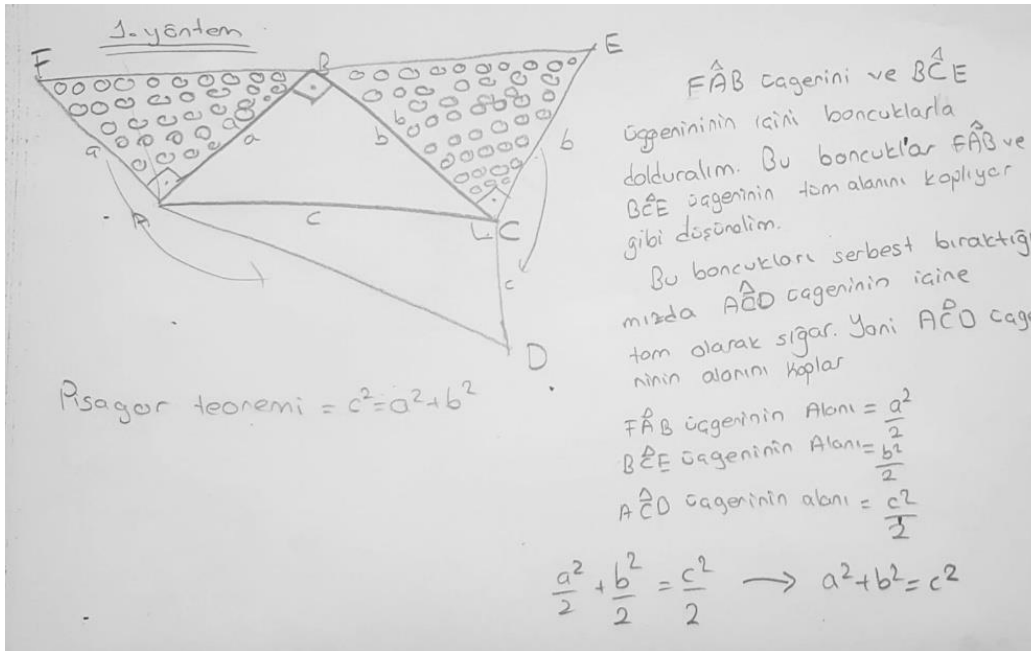 1. yöntem
F
B
E
a
a
b
b
b
A
c
C
c
D
Pisagor teoremi = c²=a²+b²
FÂB üçgenini ve BĈE
üçgenininin içini boncuklarla
dolduralım. Bu boncuklar FÂB ve
BĈE üçgeninin tüm alanını kaplıyor
gibi düşünelim.
Bu boncukları serbest bıraktığı
mızda AĈD üçgeninin içine
tam olarak sığar. Yani AĈD üçge
ninin alanını kaplar
FÂB üçgeninin Alanı = a²/2
BĈE üçgeninin Alanı = b²/2
AĈD üçgeninin alanı = c²/2
a²/2 + b²/2 = c²/2 → a²+b²=c²